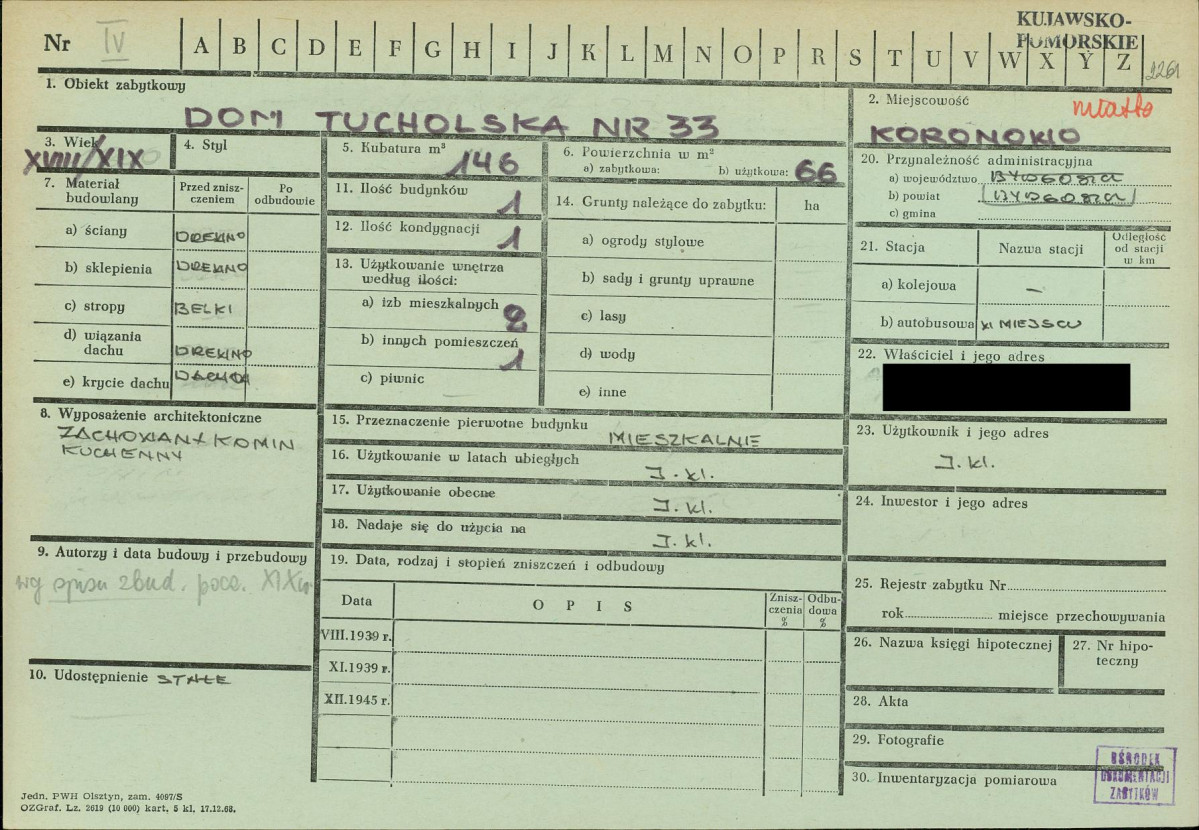 Nr IV A B C D E F G H I J K L M N O P R S T U V W X Y Z
KUJAWSKO-
POMORSKIE
2261
1. Obiekt zabytkowy
DOM TUCHOLSKA NR 33
2. Miejscowość
miasto
KORONOWO
3. Wiek
XVIII/XIX
4. Styl
5. Kubatura m³
146
6. Powierzchnia w m²
a) zabytkowa: b) użytkowa: 66
7. Materiał budowlany
Przed zniszczeniem
Po odbudowie
a) ściany DREWNO
b) sklepienia DREWNO
c) stropy BELKI
d) wiązania dachu DREWNO
e) krycie dachu
8. Wyposażenie architektoniczne
ZACHOWANY KOMIN
KUCHENNY
9. Autorzy i data budowy i przebudowy
wg spisu zbud. pocz. XIX w.
10. Udostępnienie STAŁE
11. Ilość budynków 1
12. Ilość kondygnacji 1
13. Użytkowanie wnętrza
według ilości:
a) izb mieszkalnych 2
b) innych pomieszczeń 1
c) piwnic —
14. Grunty należące do zabytku: ha
a) ogrody stylowe
b) sady i grunty uprawne
c) lasy
d) wody
e) inne
15. Przeznaczenie pierwotne budynku
MIESZKALNIE
16. Użytkowanie w latach ubiegłych
J. kl.
17. Użytkowanie obecne
J. kl.
18. Nadaje się do użycia na
J. kl.
19. Data, rodzaj i stopień zniszczeń i odbudowy
Data OPIS Zniszczenia % Odbudowa %
VIII.1939 r.
XI.1939 r.
XII.1945 r.
20. Przynależność administracyjna
a) województwo BYDGOSZCZ
b) powiat BYDGOSZCZ
c) gmina
21. Stacja Nazwa stacji Odległość od stacji w km
a) kolejowa —
b) autobusowa W MIEJSCU
22. Właściciel i jego adres
23. Użytkownik i jego adres
J. kl.
24. Inwestor i jego adres
25. Rejestr zabytku Nr
rok miejsce przechowywania
26. Nazwa księgi hipotecznej
27. Nr hipoteczny
28. Akta
29. Fotografie
30. Inwentaryzacja pomiarowa
OŚRODEK
DOKUMENTACJI
ZABYTKÓW
Jedn. PWH Olsztyn, zam. 4097/S
OZGraf. Lz. 2619 (10 000) kart, 5 kl, 17.12.68.